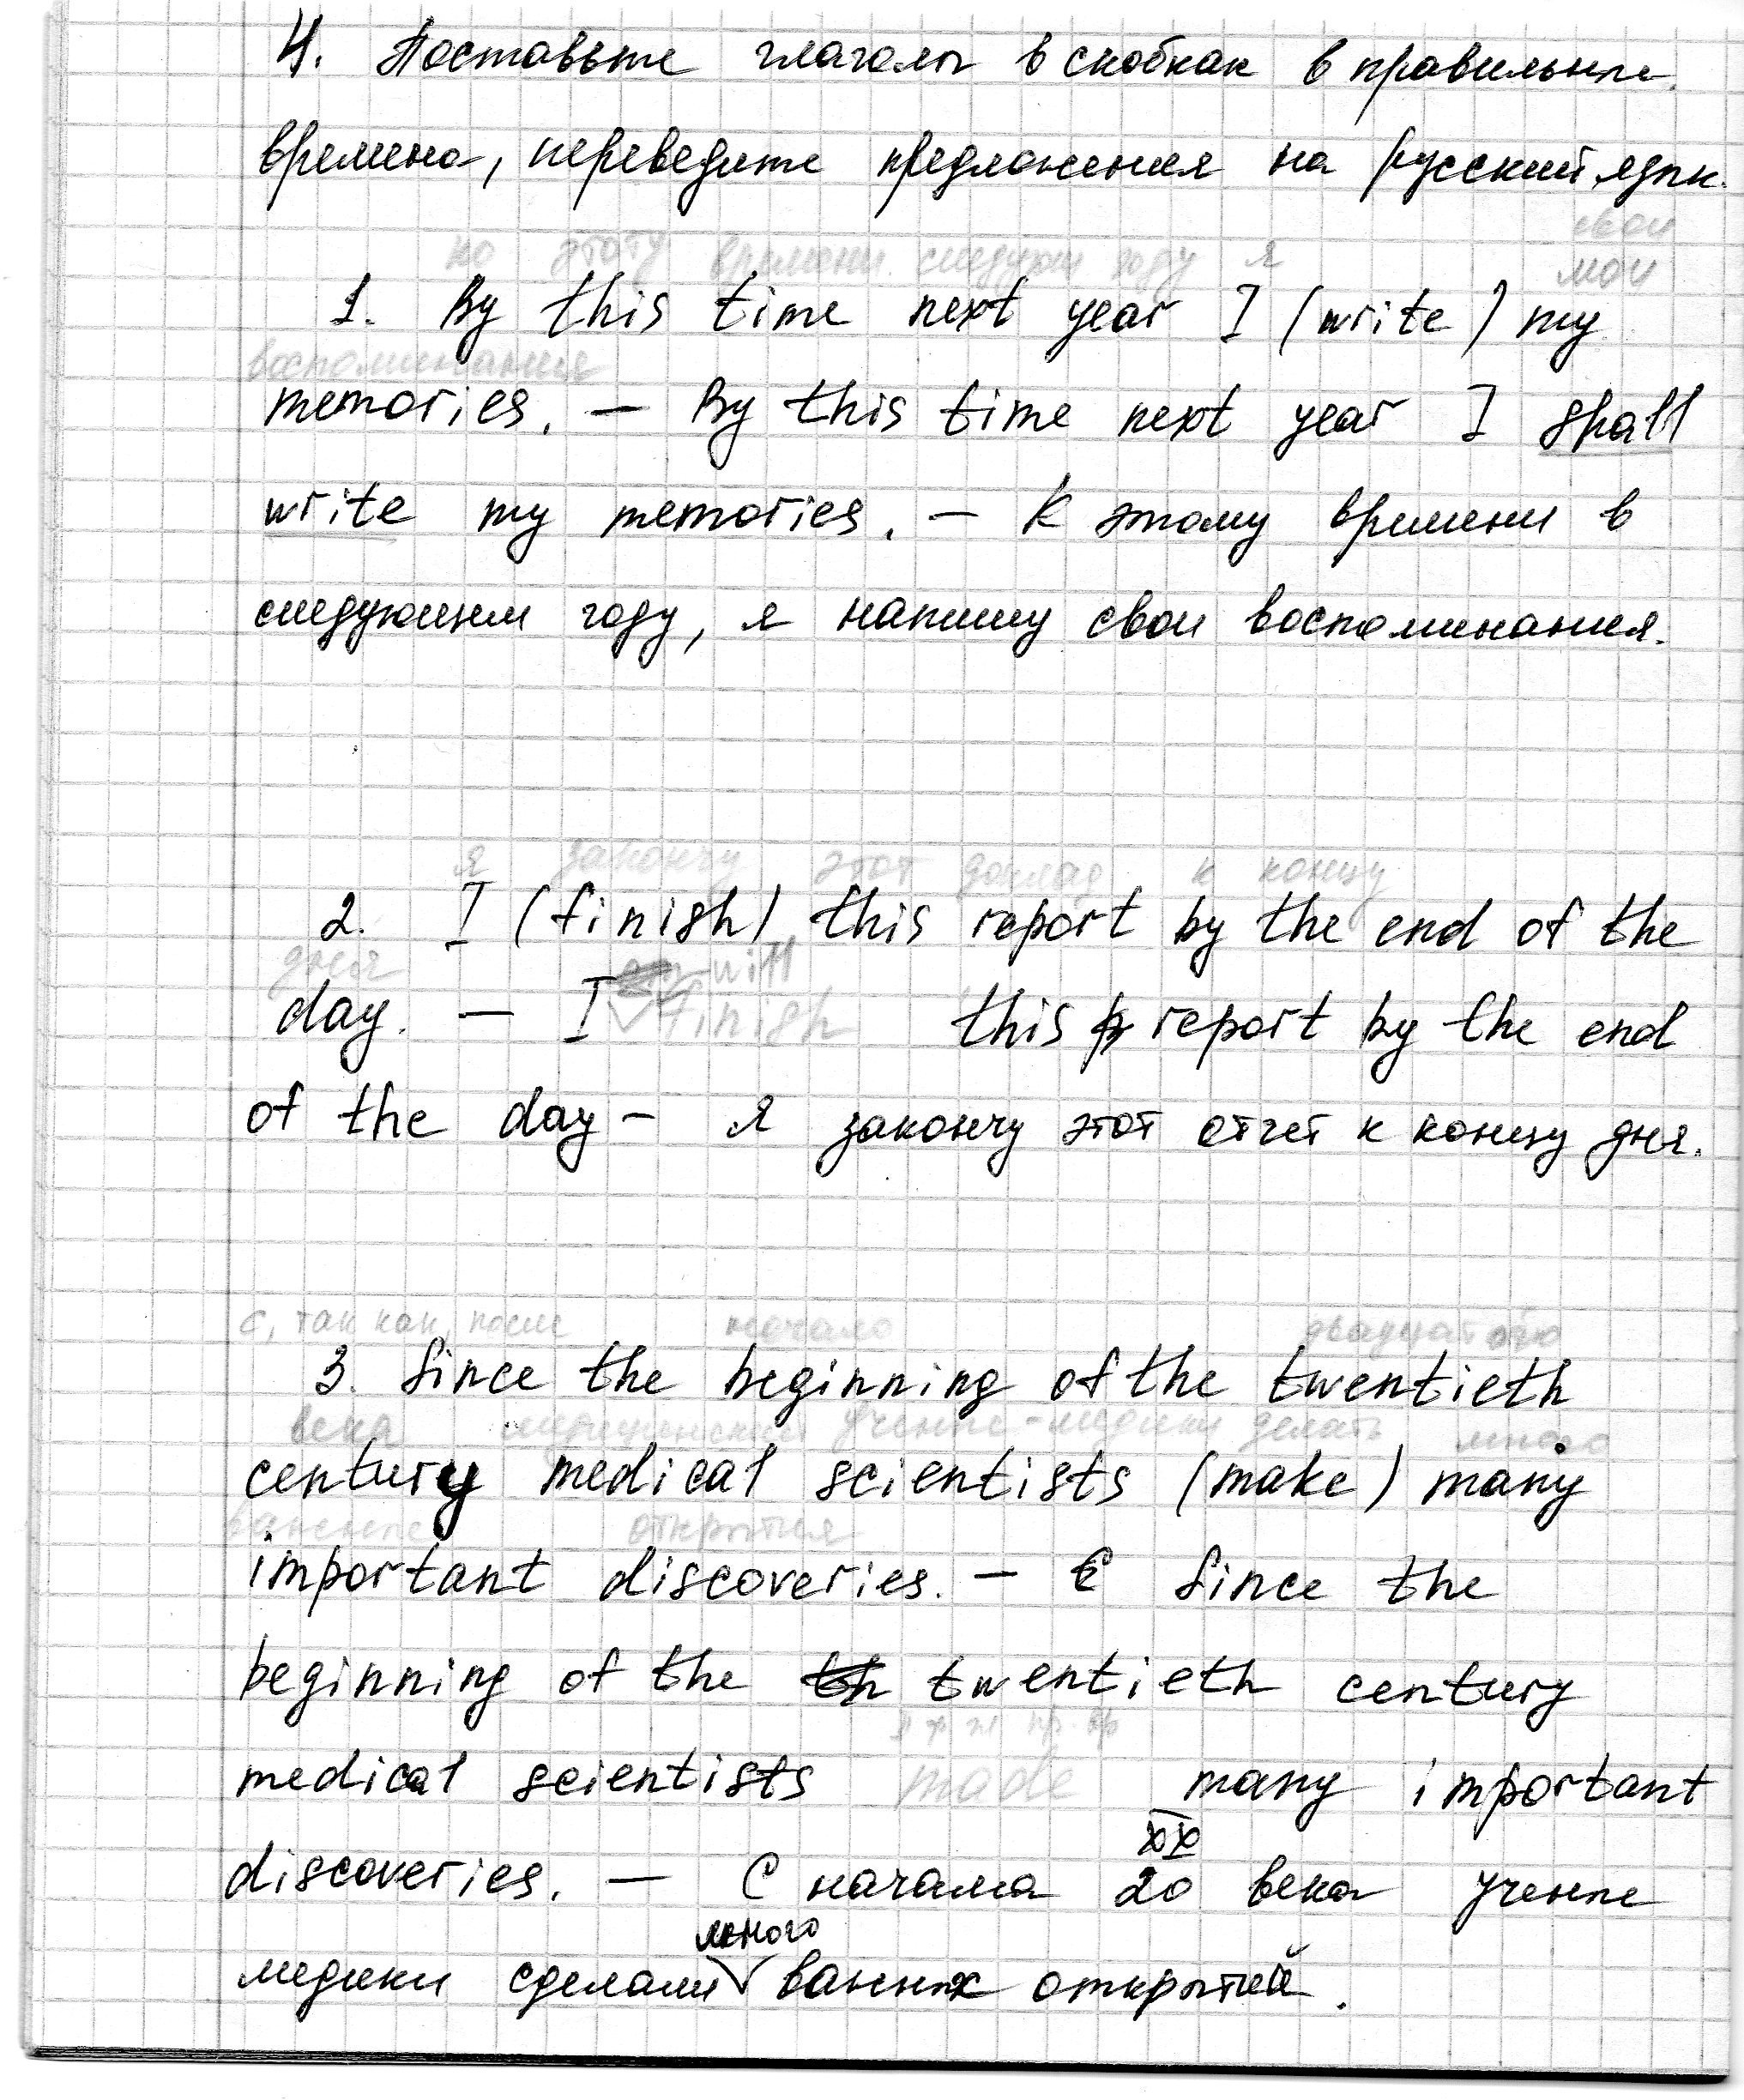 4. Поставьте глаголы в скобках в правильные
времена, переведите предложения на русский язык.
ко этому времени следующ году я свои
мои
1. By this time next year I (write) my
воспоминания
memories. — By this time next year I shall
write my memories. — К этому времени в
следующем году, я напишу свои воспоминания.
я закончу этот доклад к концу
2. I (finish) this report by the end of the
дня will
day. — I finish this report by the end
of the day — Я закончу этот отчет к концу дня.
с, так как, после начало двадцатого
3. Since the beginning of the twentieth
века медицинский ученые-медики делать много
century medical scientists (make) many
важные открытия
important discoveries. — Since the
beginning of the twentieth century
medical scientists made many important
XX
discoveries. — С начала 20 века ученые
много
медики сделали важных открытий.